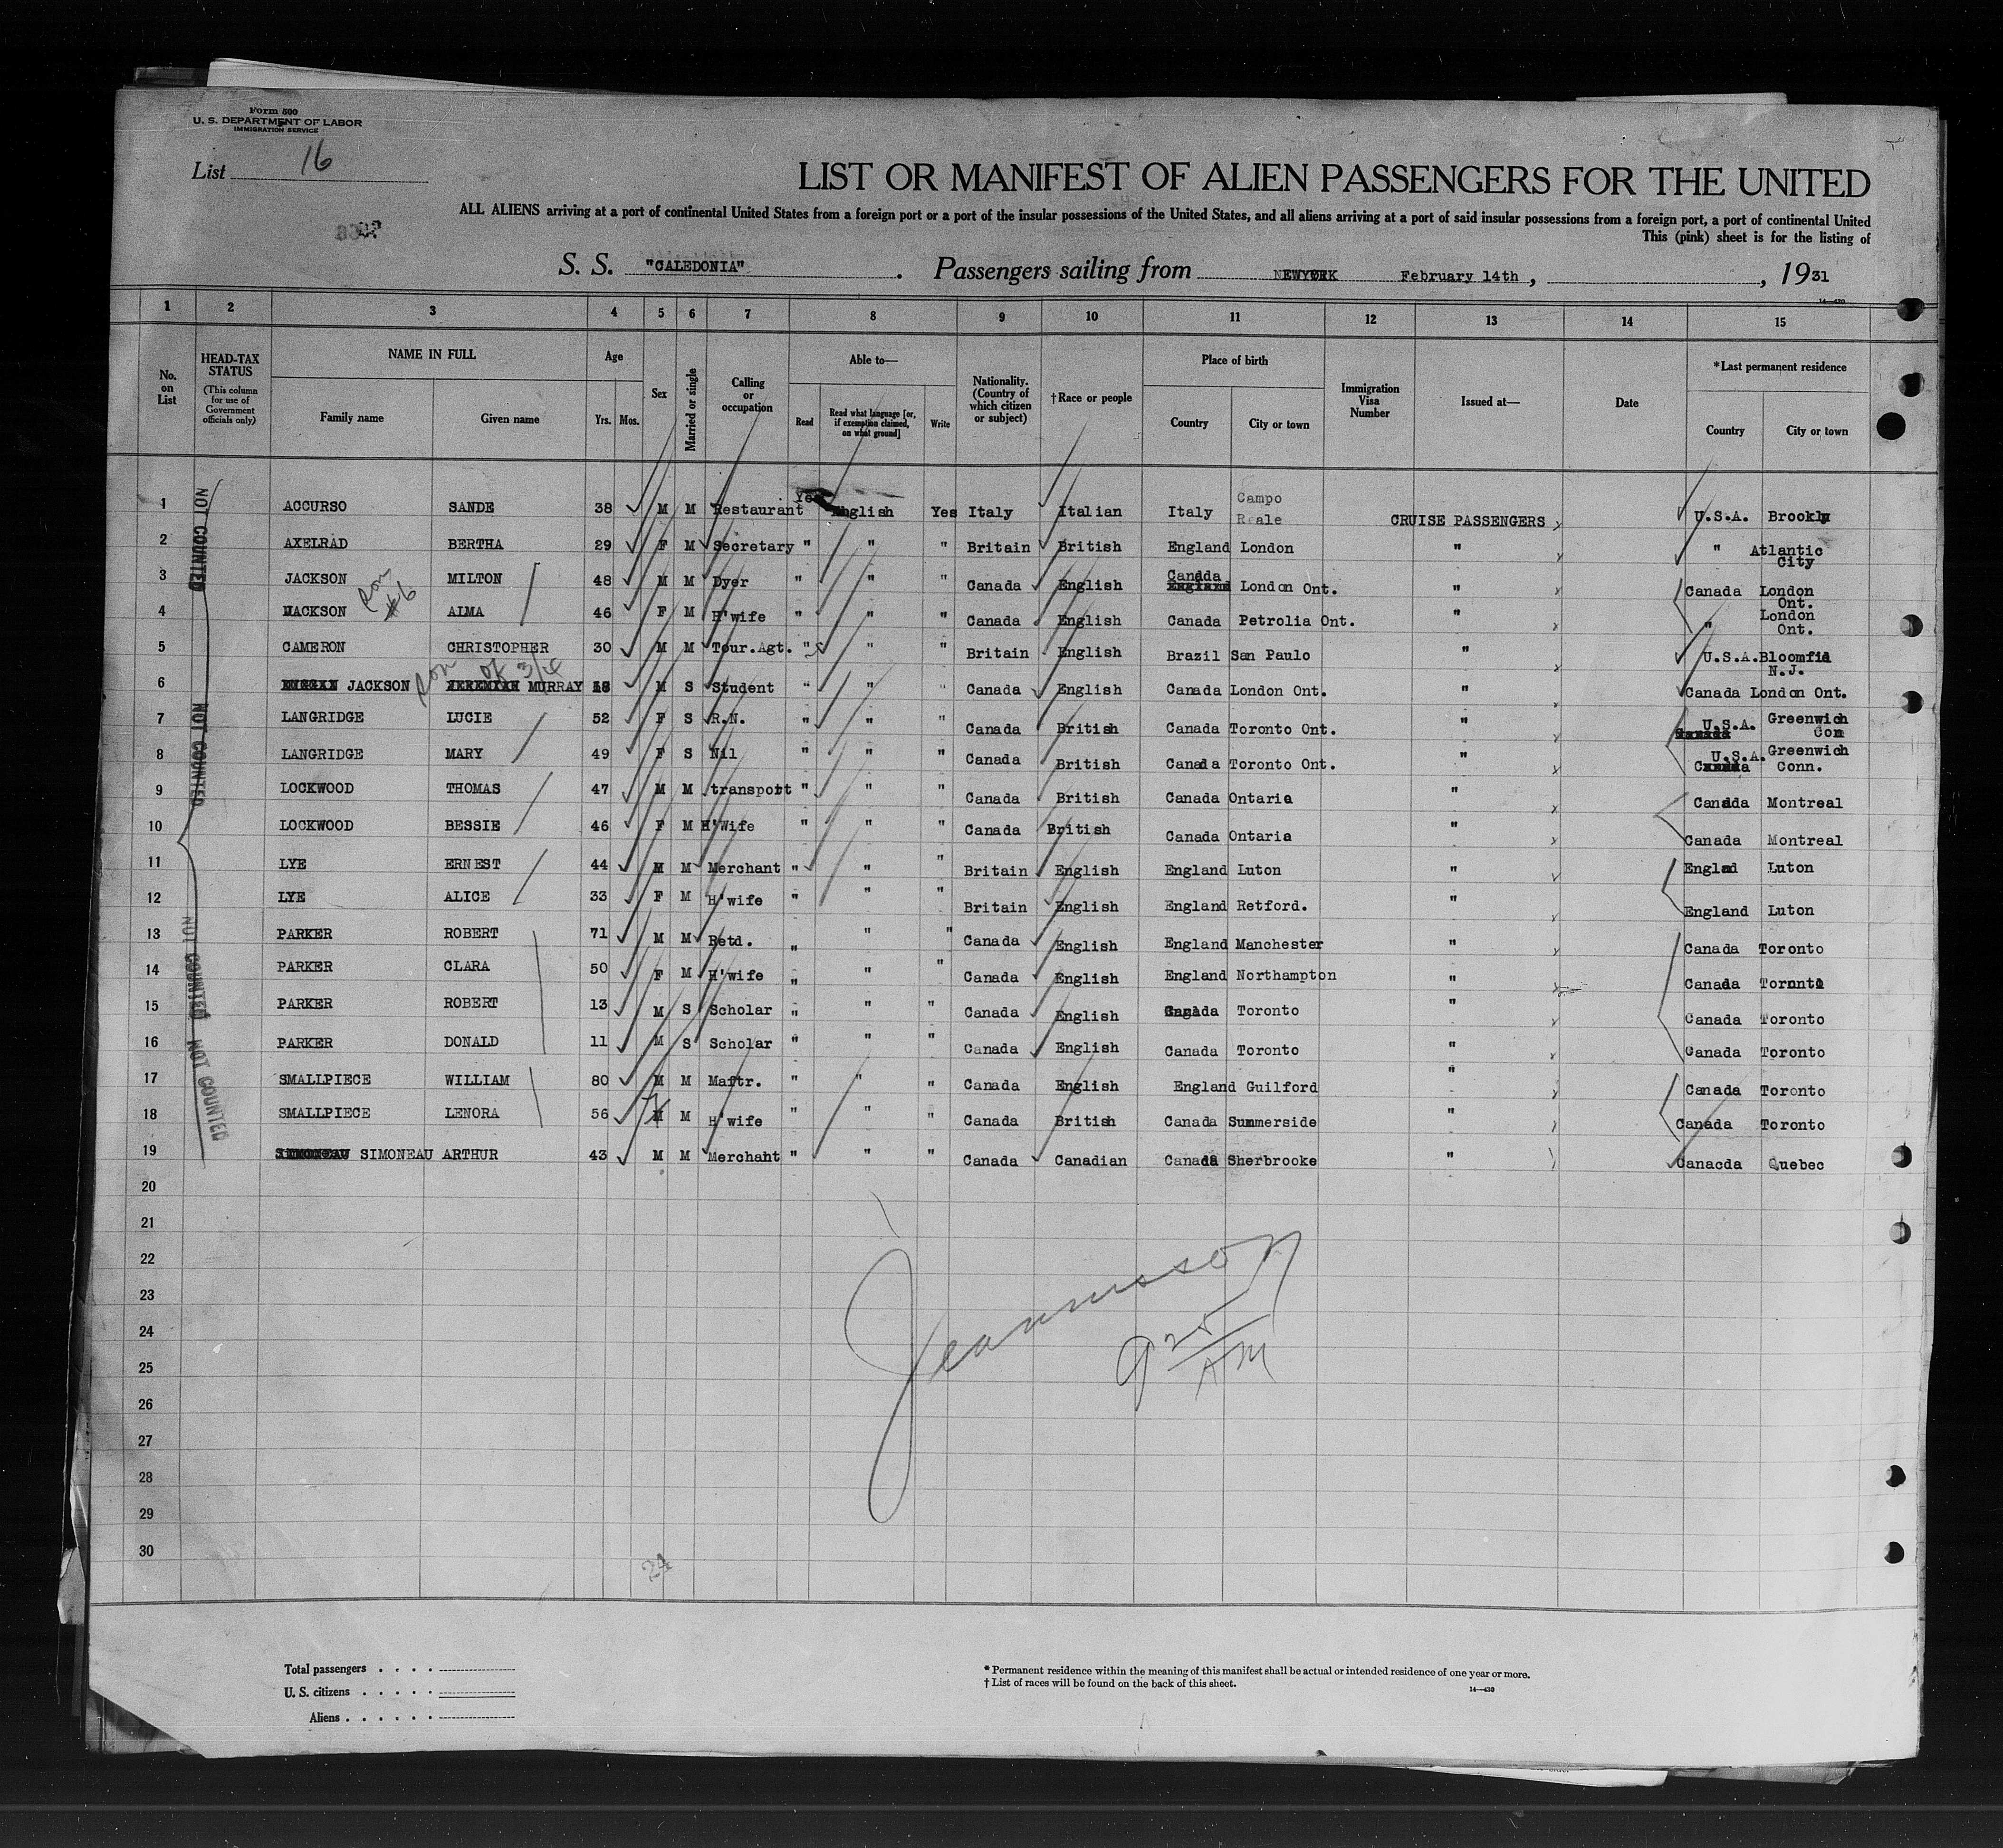 Form 500
U. S. DEPARTMENT OF LABOR
IMMIGRATION SERVICE
List 16
LIST OR MANIFEST OF ALIEN PASSENGERS FOR THE UNITED
ALL ALIENS arriving at a port of continental United States from a foreign port or a port of the insular possessions of the United States, and all aliens arriving at a port of said insular possessions from a foreign port, a port of continental United
This (pink) sheet is for the listing of
S. S. "CALEDONIA". Passengers sailing from NEWYORK February 14th, , 1931
14—430
1 2 3 4 5 6 7 8 9 10 11 12 13 14 15
No. on List
HEAD-TAX STATUS (This column for use of Government officials only)
NAME IN FULL Family name Given name
Age Yrs. Mos.
Sex
Married or single
Calling or occupation
Able to— Read Read what language [or, if exemption claimed, on what ground] Write
Nationality. (Country of which citizen or subject)
†Race or people
Place of birth Country City or town
Immigration Visa Number
Issued at—
Date
*Last permanent residence Country City or town
NOT COUNTED
NOT COUNTED
NOT COUNTED
NOT COUNTED
1 ACCURSO SANDE 38 M M Restaurant Yes English Yes Italy Italian Italy Campo Reale CRUISE PASSENGERS U.S.A. Brookly
2 AXELRAD BERTHA 29 F M Secretary " " " Britain British England London " " Atlantic City
3 JACKSON MILTON 48 M M Dyer " " " Canada English Canada London Ont. " Canada London Ont.
son #6
4 MACKSON ALMA 46 F M H'wife " " " Canada English Canada Petrolia Ont. " " London Ont.
5 CAMERON CHRISTOPHER 30 M M Tour.Agt. " " " Britain English Brazil San Paulo " U.S.A. Bloomfie N.J.
son of 3/4
6 JACKSON MURRAY 18 M S Student " " " Canada English Canada London Ont. " Canada London Ont.
7 LANGRIDGE LUCIE 52 F S R.N. " " " Canada British Canada Toronto Ont. " U.S.A. Greenwich Con
8 LANGRIDGE MARY 49 F S Nil " " " Canada British Canada Toronto Ont. " U.S.A. Greenwich Conn.
9 LOCKWOOD THOMAS 47 M M transport " " " Canada British Canada Ontario " Canada Montreal
10 LOCKWOOD BESSIE 46 F M H'Wife " " " Canada British Canada Ontario " Canada Montreal
11 LYE ERNEST 44 M M Merchant " " " Britain English England Luton " England Luton
12 LYE ALICE 33 F M H'wife " " " Britain English England Retford. " England Luton
13 PARKER ROBERT 71 M M Retd. " " " Canada English England Manchester " Canada Toronto
14 PARKER CLARA 50 F M H'wife " " " Canada English England Northampton " Canada Toronto
15 PARKER ROBERT 13 M S Scholar " " " Canada English Canada Toronto " Canada Toronto
16 PARKER DONALD 11 M S Scholar " " " Canada English Canada Toronto " Canada Toronto
17 SMALLPIECE WILLIAM 80 M M Maftr. " " " Canada English England Guilford " Canada Toronto
18 SMALLPIECE LENORA 56 M M H'wife " " " Canada British Canada Summerside " Canada Toronto
19 SIMONEAU SIMONEAU ARTHUR 43 M M Merchant " " " Canada Canadian Canada Sherbrooke " Canacda Quebec
20
21
22
23
24
25
26
27
28
29
30
925 AM
24
Total passengers . . . .
U. S. citizens . . . . .
Aliens . . . . . .
* Permanent residence within the meaning of this manifest shall be actual or intended residence of one year or more.
† List of races will be found on the back of this sheet.
14—430